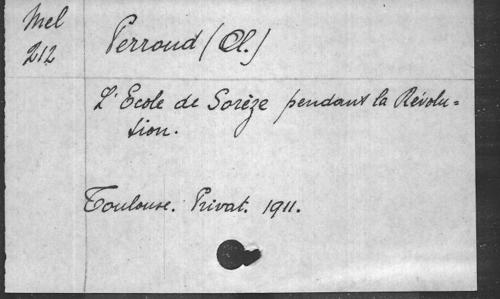 Mel
212
Perroud (Cl.)
L'Ecole de Sorèze pendant la Révolu-
tion.
Toulouse. Privat. 1911.